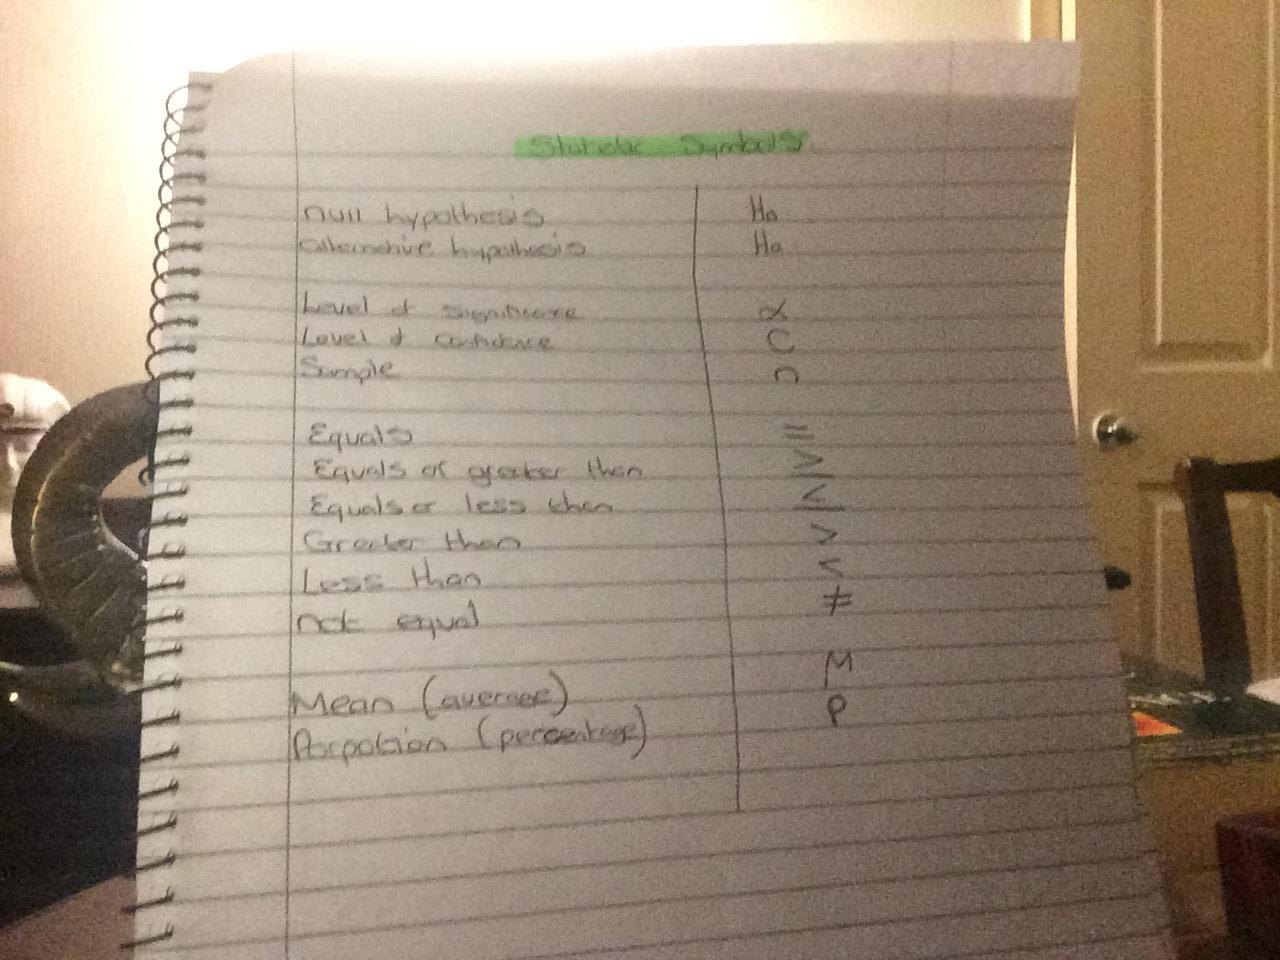 Statistic Symbols
null hypothesis Ho
alternative hypothesis Ha
Level of significance α
Level of confidence C
Sample n
Equals =
Equals or greater than ≥
Equals or less then ≤
Greater than >
Less than <
not equal ≠
Mean (average) M
Porpotion (percentage) P